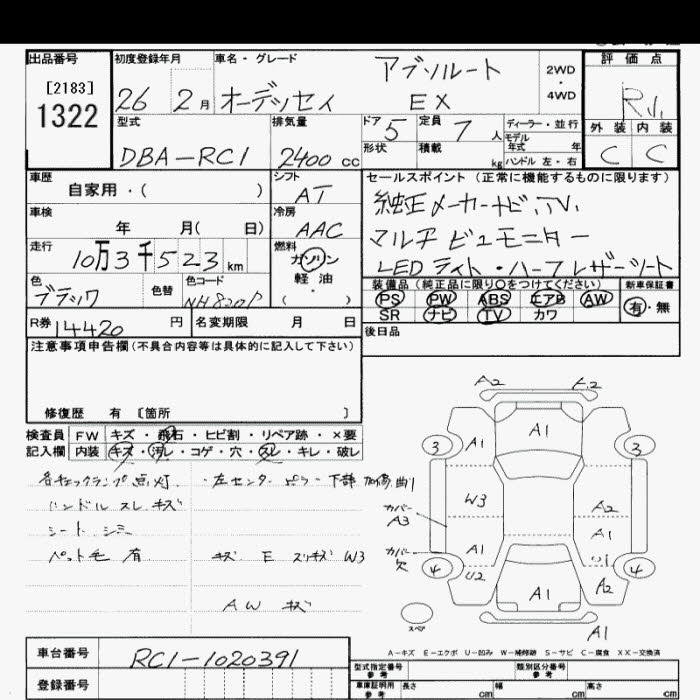 出品番号 初度登録年月 車名・グレード 評価点
[2183] アブソルート 2WD
1322 26 2月 オーデッセイ EX 4WD R
型式 排気量 ドア 定員 ディーラー・並行 外装 内装
5 7人 モデル年式 年
DBA-RC1 2400cc 形状 積載 kg ハンドル 左・右 C C
車歴 シフト セールスポイント (正常に機能するものに限ります)
自家用・( ) AT 純正メーカーナビ.TV.
車検 冷房
年 月( 日) AAC マルチビュモニター
走行 燃料
10万3千523km ガソリン LEDライト・ハーフレザーシート
色 色替 色コード 軽油 装備品 (純正品に限り○をつけてください) 新車保証書
ブラック NH820P ・( ) PS PW ABS エアB AW 有・無
SR ナビ TV カワ
R券 14420円 名変期限 月 日 後日品
注意事項申告欄 (不具合内容等は具体的に記入して下さい)
修復歴 有 [箇所 ]
検査員 FW キズ・飛石・ヒビ割・リペア跡・×要
記入欄 内装 キズ・汚レ・コゲ・穴・スレ・キレ・破レ
各チェックランプ点灯. ・左センターピラー下部 曲り
ハンドル スレ キズ
シート シミ
ペット毛 有 キズ E スリキズ W3
AW キズ
A2 A1 3 3
A1
W3 A2
カバー A3
A1 A1
カバー欠
4 U2 A2 4
A1
スペア A1
A-キズ E-エクボ U-凹み W-補修跡 S-サビ C-腐食 XX-交換済
車台番号 RC1-1020391
登録番号
型式指定番号 参考 類別区分番号 参考
車庫証明用 参考 長さ cm 幅 cm 高さ cm